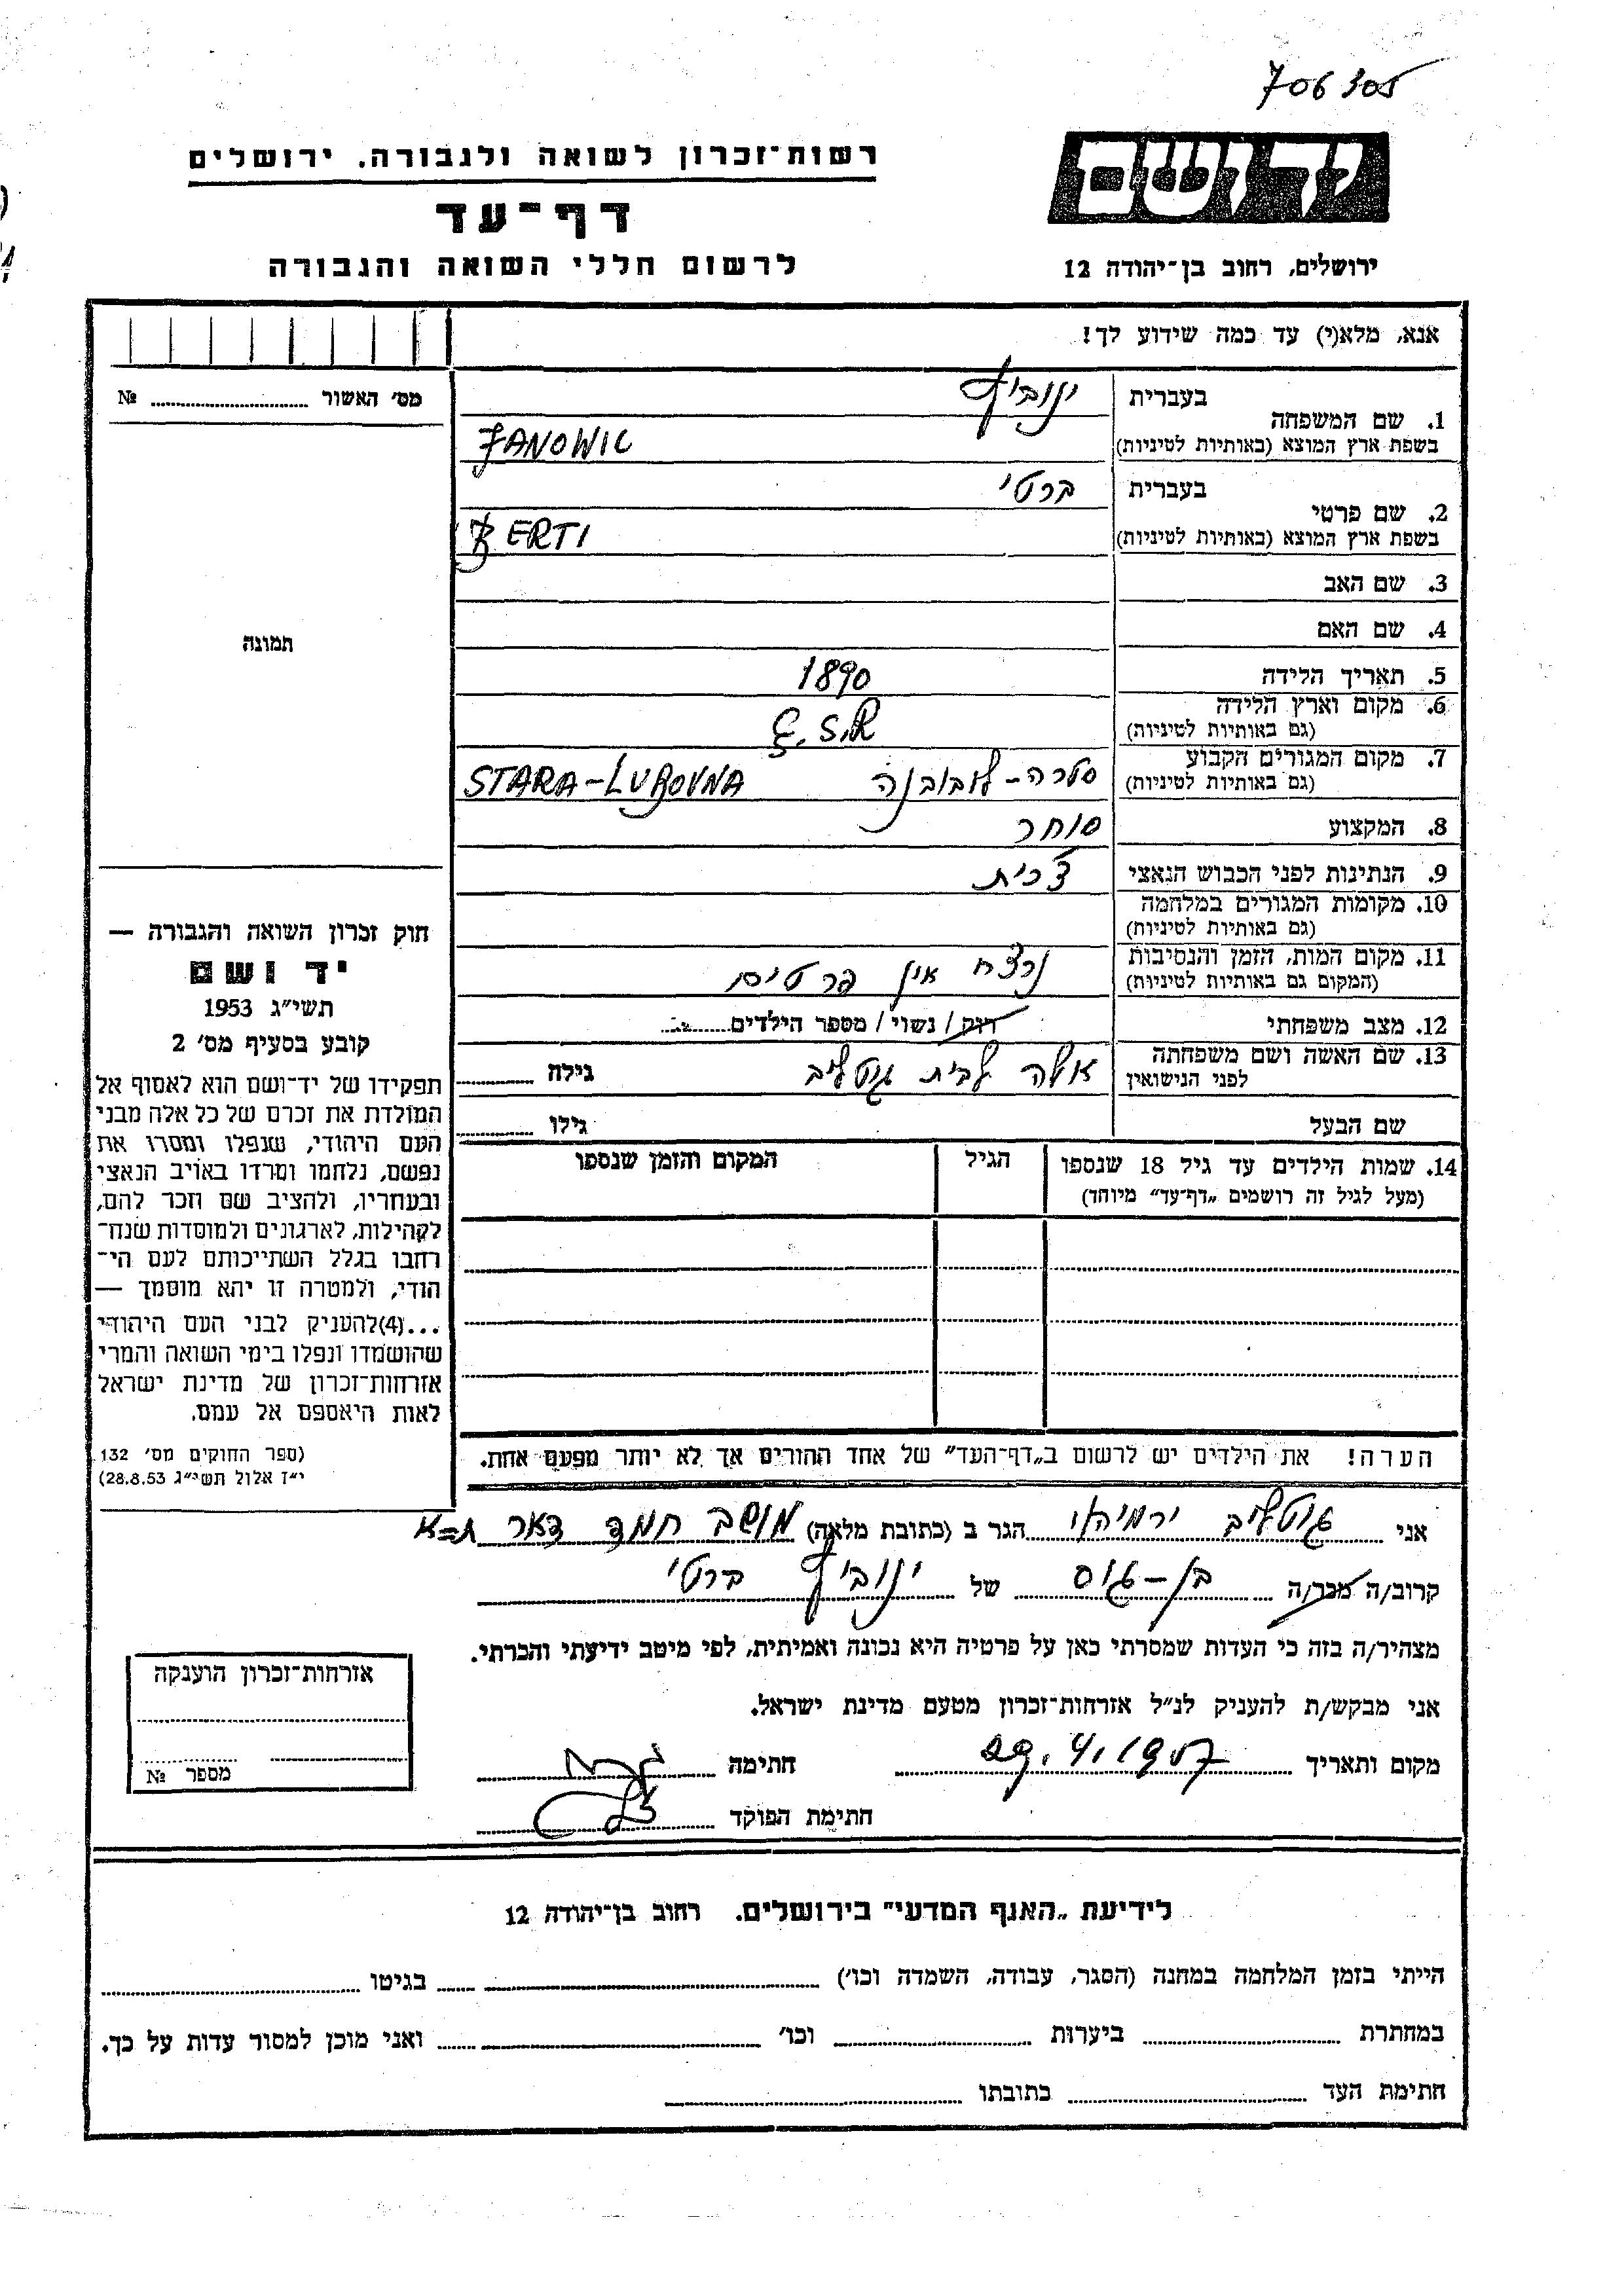 706305
יד ושם
ירושלים, רחוב בן־יהודה 12
רשות־זכרון לשואה ולגבורה, ירושלים
דף־עד
לרשום חללי השואה והגבורה
אנא, מלא(י) עד כמה שידוע לך!
מס׳ האשור № 
1. שם המשפחה בעברית ינוביץ
בשפת ארץ המוצא (באותיות לטיניות) JANOWIC
2. שם פרטי בעברית ברטי
בשפת ארץ המוצא (באותיות לטיניות) BERTI
3. שם האב
4. שם האם
תמונה
5. תאריך הלידה 1890
6. מקום וארץ הלידה Č.S.R
(גם באותיות לטיניות)
7. מקום המגורים הקבוע סטרה-לובובנה STARA-LUBOVNA
(גם באותיות לטיניות)
8. המקצוע סוחר
9. הנתינות לפני הכבוש הנאצי צ׳כית
10. מקומות המגורים במלחמה
(גם באותיות לטיניות)
11. מקום המות, הזמן והנסיבות נרצח אין פרטים
(המקום גם באותיות לטיניות)
12. מצב משפחתי רוק / נשוי / מספר הילדים
13. שם האשה ושם משפחתה לבית גוטליב גילה
לפני הנישואין
שם הבעל גילו
14. שמות הילדים עד גיל 18 שנספו
(מעל לגיל זה רושמים „דף־עד״ מיוחד)
הגיל
המקום והזמן שנספו
הערה! את הילדים יש לרשום ב„דף־העד״ של אחד ההורים אך לא יותר מפעם אחת.
חוק זכרון השואה והגבורה —
יד ושם
תשי״ג 1953
קובע בסעיף מס׳ 2
תפקידו של יד־ושם הוא לאסוף אל
המולדת את זכרם של כל אלה מבני
העם היהודי, שנפלו ומסרו את
נפשם, נלחמו ומרדו באויב הנאצי
ובעוזריו, ולהציב שם וזכר להם,
לקהילות, לארגונים ולמוסדות שנח־
רחבו בגלל השתייכותם לעם הי־
הודי, ולמטרה זו יהא מוסמך —
...(4)להעניק לבני העם היהודי
שהושמדו ונפלו בימי השואה והמרי
אזרחות־זכרון של מדינת ישראל
לאות היאספם אל עמם.
(ספר החוקים מס׳ 132
י״ז אלול תשי״ג 28.8.53)
אני גוטליב ירמיהו הגר ב (כתובת מלאה) מושב חמד דאר ת=א
קרוב/ה מכר/ה בן-גיס של ינוביץ ברטי
מצהיר/ה בזה כי העדות שמסרתי כאן על פרטיה היא נכונה ואמיתית, לפי מיטב ידיעתי והכרתי.
אני מבקש/ת להעניק לנ״ל אזרחות־זכרון מטעם מדינת ישראל.
מקום ותאריך 29.4.1957 חתימה
חתימת הפוקד
אזרחות־זכרון הוענקה
מספר №
לידיעת „האגף המדעי״ בירושלים. רחוב בן־יהודה 12
הייתי בזמן המלחמה במחנה (הסגר, עבודה, השמדה וכו׳) בגיטו
במחתרת ביערות וכו׳ ואני מוכן למסור עדות על כך.
חתימת העד כתובתו